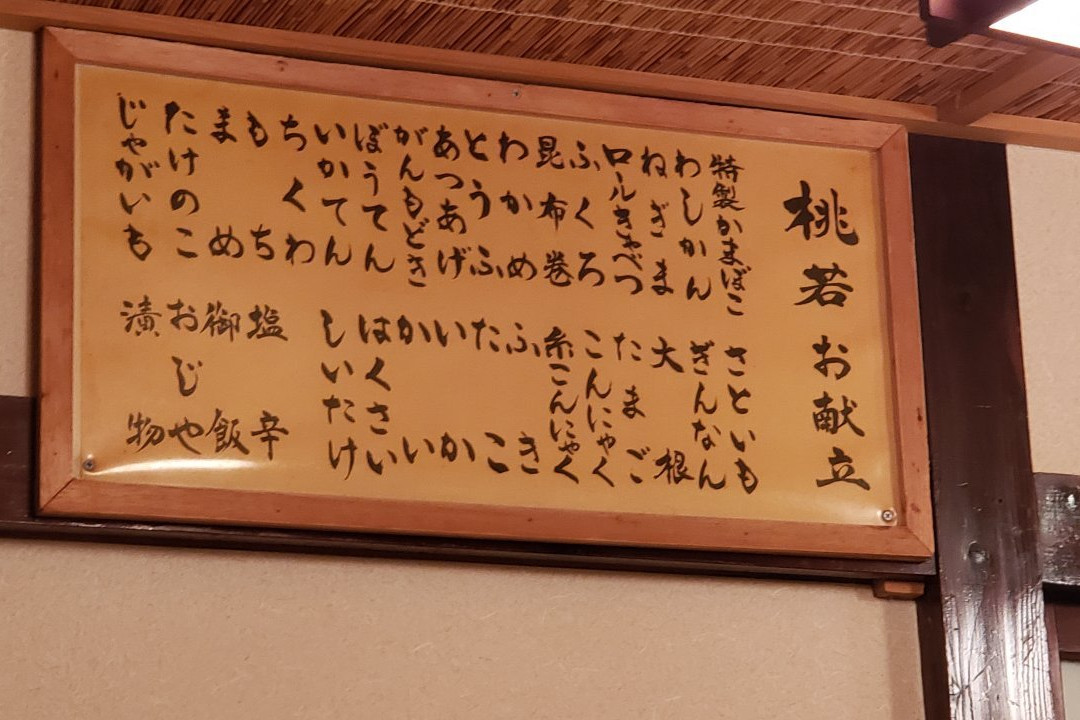 桃若お献立
特製かまぼこ
わしかん
ねぎま
ロールきゃべつ
ふくろ
昆布巻
わかめ
とうふ
あつあげ
がんもどき
ぼうてん
いかてん
ちくわ
もち
まめ
たけのこ
じゃがいも
さといも
ぎんなん
大根
たまご
こんにゃく
糸こんにゃく
ふき
たこ
いか
かい
はくさい
しいたけ
塩辛
御飯
おじや
漬物